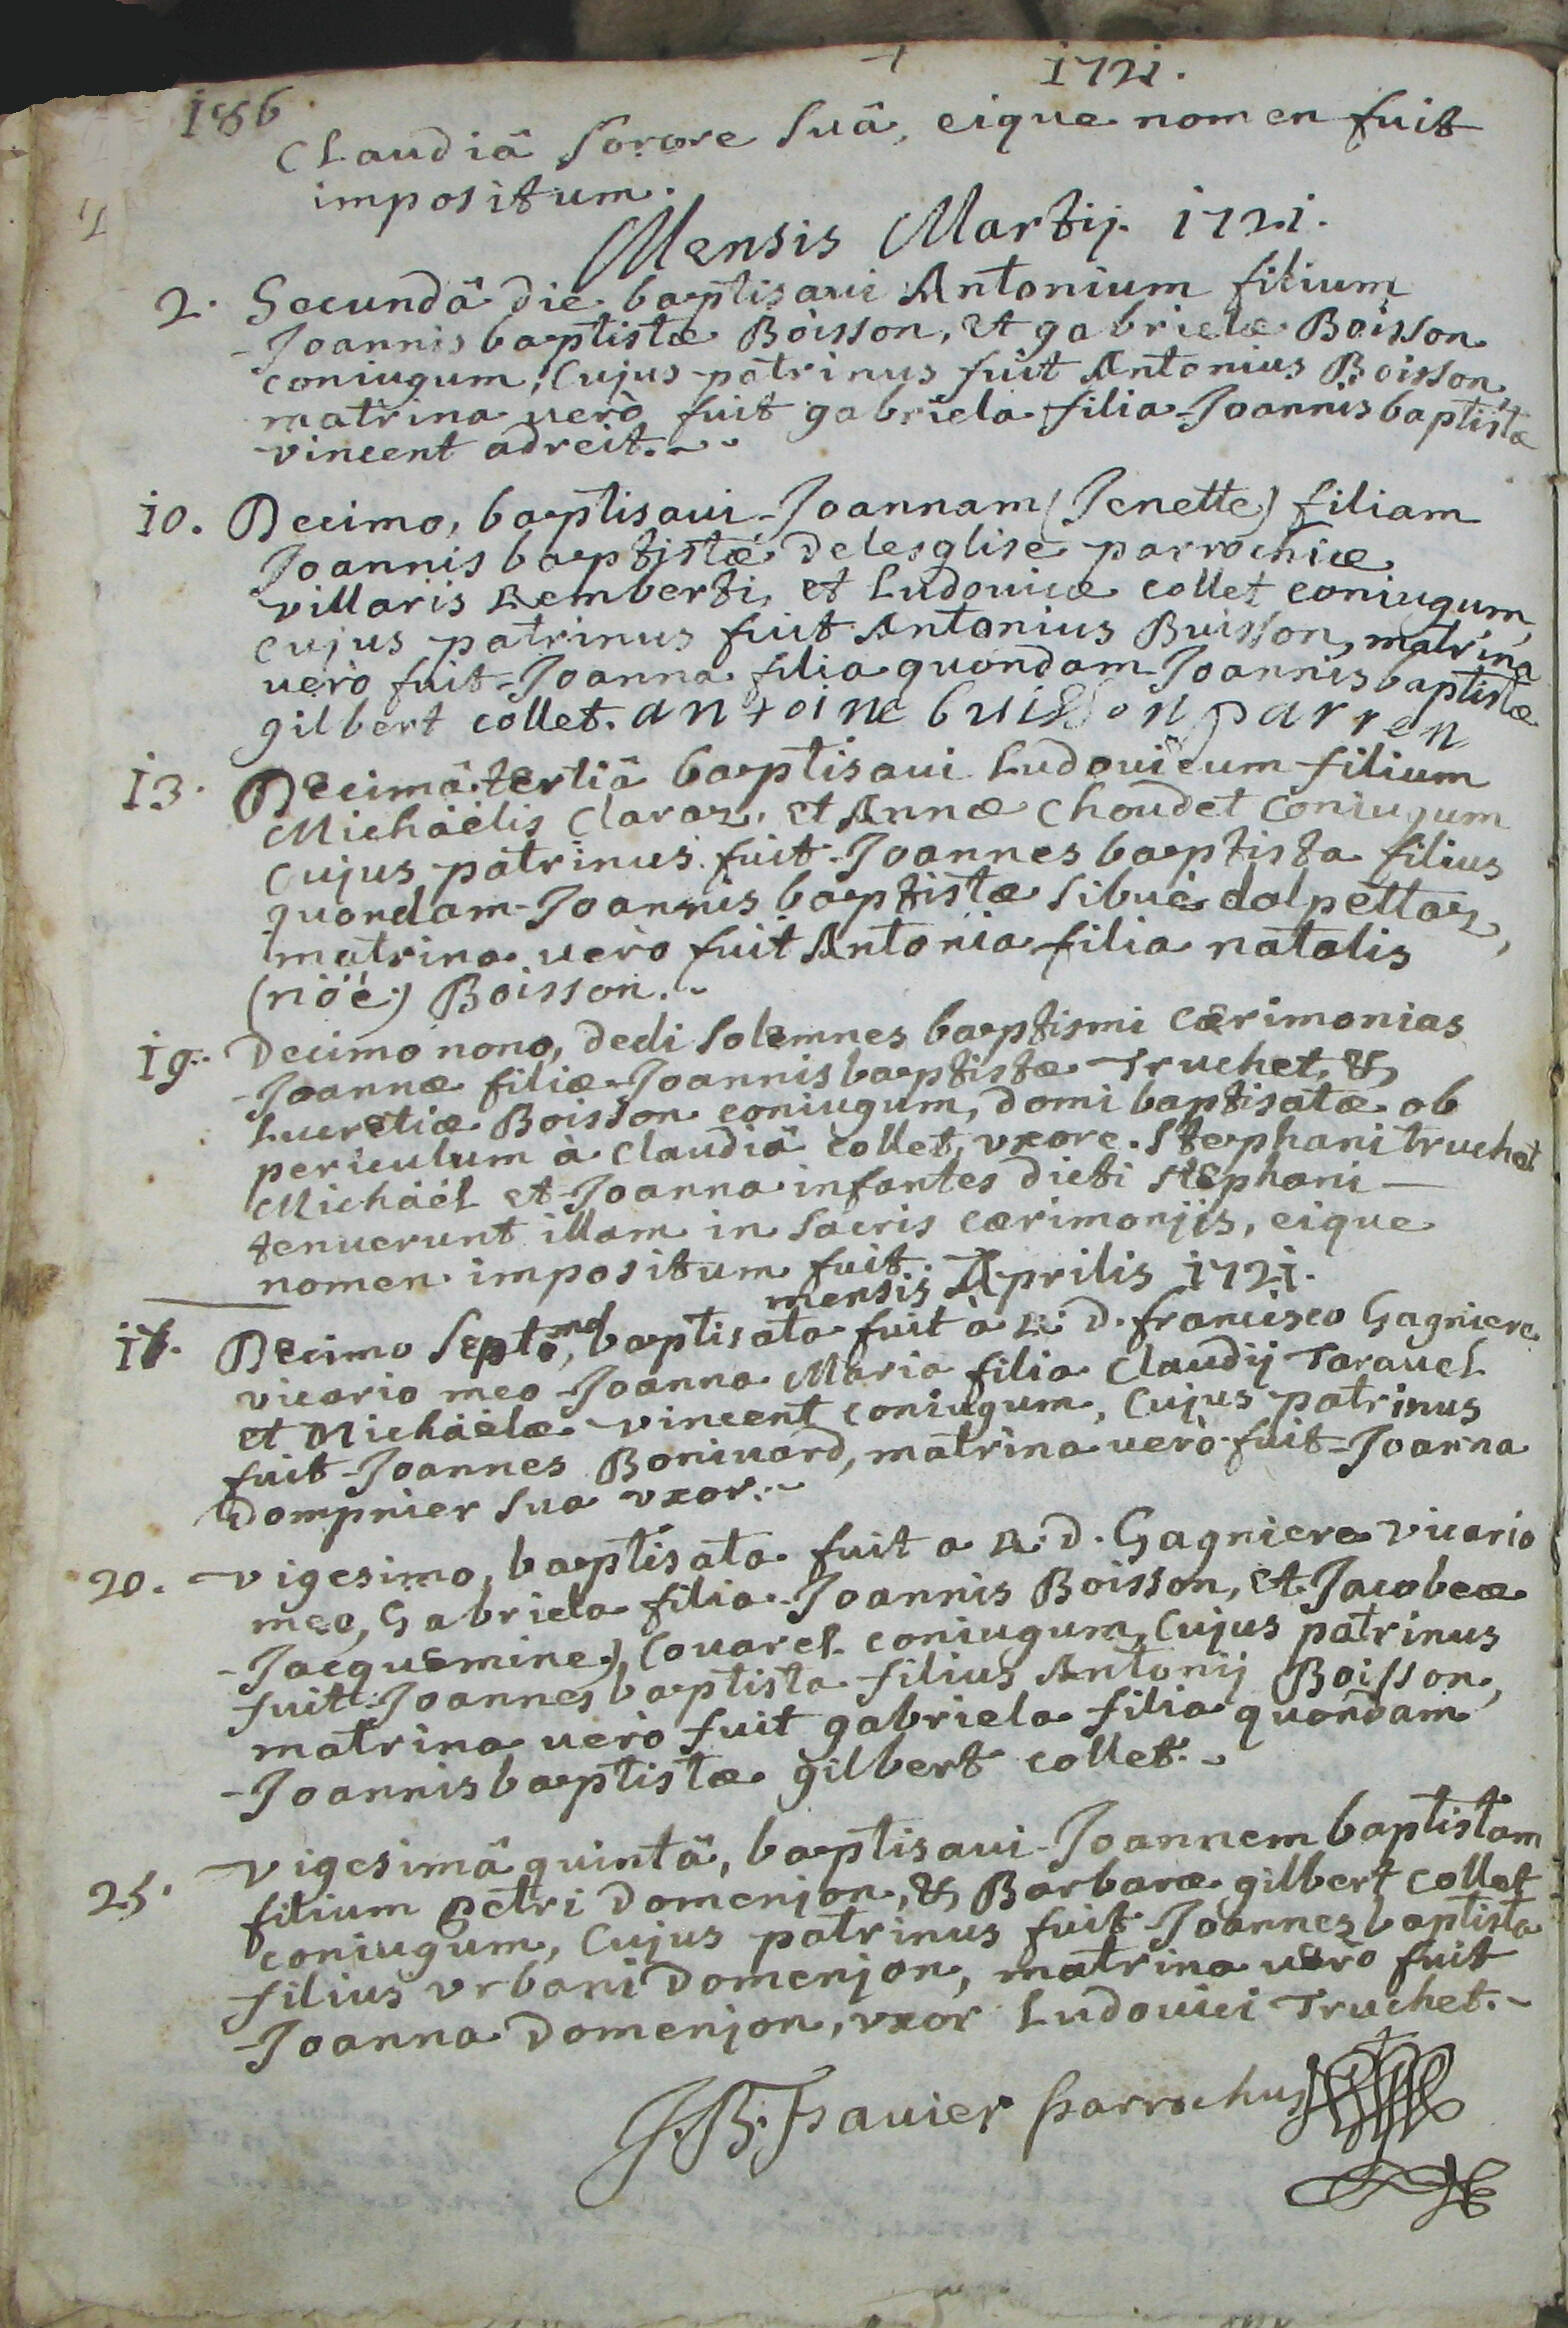 186 + 1721.
Claudiâ sorore suâ, eique nomen fuit
impositum.
Mensis Martij. 1721.
2. Secundâ die baptisaui Antonium filium
Joannis baptistæ Boisson, et gabrielæ Boisson
coniugum, Cujus patrinus fuit Antonius Boisson,
matrina uerò fuit gabriela filia Joannis baptistæ
vincent adreit.
10. Decimo, baptisaui Joannam (Jenette) filiam
Joannis baptistæ delesglise parrochiæ
villaris Remberti, et Ludouicæ collet coniugum,
cujus patrinus fuit Antonius Buisson, matrina
uerò fuit Joanna filia quondam Joannis baptistæ
gilbert collet. antoine buisson parren
13. Decimâ tertiâ baptisaui Ludouicum filium
Michäelis Claraz, et Annæ Choudet coniugum
Cujus patrinus fuit Joannes baptista filius
quondam Joannis baptistæ sibué dalpettaz,
matrina uerò fuit Antonia filia natalis
(nöé) Boisson.
19. Decimo nono, dedi solemnes baptismi cærimonias
Joannæ filiæ Joannis baptistæ Truchet, &
Lucretiæ Boisson coniugum, domi baptisatæ ob
periculum à Claudiâ collet, vxore Stephani truchet
Michäel et Joanna infantes dicti stephani
tenuerunt illam in sacris cærimonijs, eique
nomen impositum fuit.
mensis Aprilis 1721.
17. Decimo septimo, baptisata fuit à R. D. francisco Gagniere
vicario meo Joanna Maria filia Claudij Tarauel
et Michäelæ vincent coniugum, Cujus patrinus
fuit Joannes Boniuard, matrina uerò fuit Joanna
Dompnier sua vxor.
20. vigesimo, baptisata fuit a R. D. Gagniere vicario
meo, Gabriela filia Joannis Boisson, et Jacobeæ
Jacquemine) Couarel coniugum, Cujus patrinus
fuit Joannes baptista filius Antonij Boisson,
matrina uerò fuit gabriela filia quondam
Joannis baptistæ gilbert collet.
25. vigesimâ quintâ, baptisaui Joannem baptistam
filium Petri Domenjon, & Barbaræ gilbert collet
coniugum, Cujus patrinus fuit Joannes baptista
filius vrbani Domenjon, matrina uero fuit
Joanna Domenjon, vxor Ludouici Truchet.
J. B. parrochus